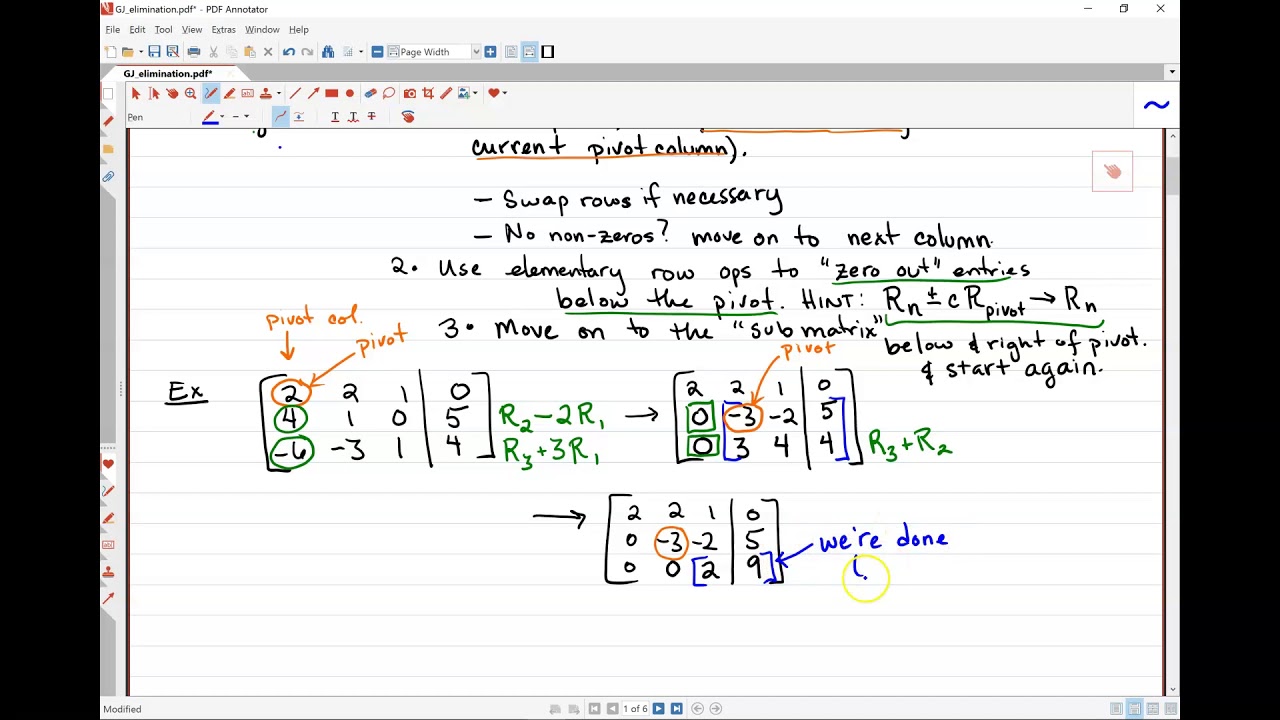 GJ_elimination.pdf* - PDF Annotator
File Edit Tool View Extras Window Help
Page Width
GJ_elimination.pdf*
Pen
current pivot column).
– Swap rows if necessary
– No non-zeros? move on to next column.
2. Use elementary row ops to "zero out" entries
below the pivot. HINT: Rn ± c Rpivot → Rn
3. Move on to the "submatrix" below & right of pivot.
& start again.
pivot col.
pivot
pivot
Ex
2 2 1 | 0
4 1 0 | 5 R2 – 2R1
-6 -3 1 | 4 R3 + 3R1
→
2 2 1 | 0
0 -3 -2 | 5
0 3 4 | 4 R3 + R2
→
2 2 1 | 0
0 -3 -2 | 5
0 0 2 | 9
we're done
(
Modified
1 of 6